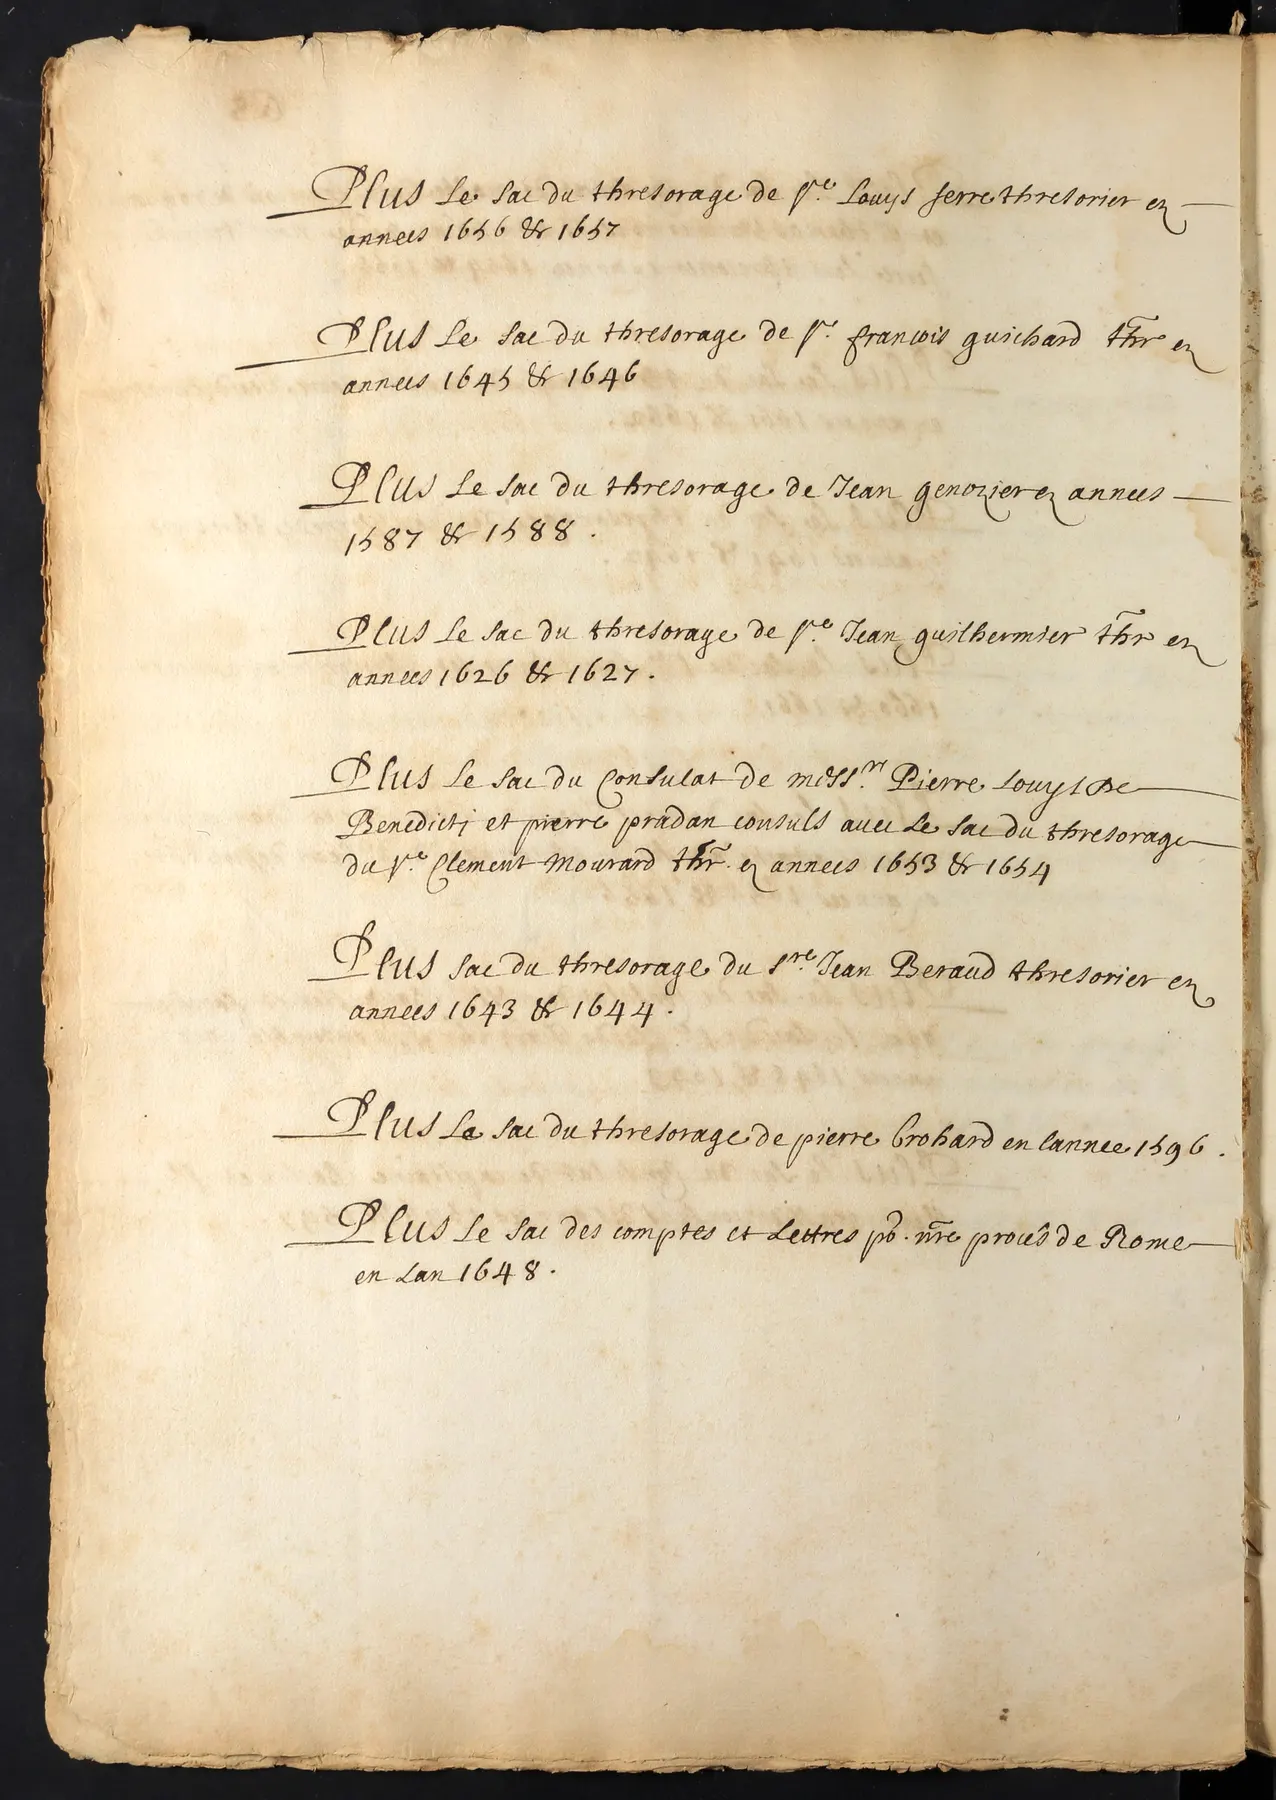 Plus Le sac du thresorage de Sr.e Louys serre thresorier en
annees 1656 & 1657
Plus Le sac du thresorage de Sr. françois guichard thr̃ en
annees 1645 & 1646
Plus Le sac du thresorage de Jean genozier en annees
1587 & 1588.
Plus Le sac du thresorage de Sr.e Jean guilhermier thr̃ en
annees 1626 & 1627.
Plus Le sac du Consulat de mess.re Pierre Louys De
Benedicti et pierre pradan consuls avec Le sac du thresorage
du Sr.e Clement Mourard thr̃. en annees 1653 & 1654
Plus sac du thresorage du Sre. Jean Beraud thresorier en
annees 1643 & 1644.
Plus Le sac du thresorage de pierre brohard en lannee 1596.
Plus Le sac des comptes et Lettres pō. nr̃e procés de Rome
en Lan 1648.